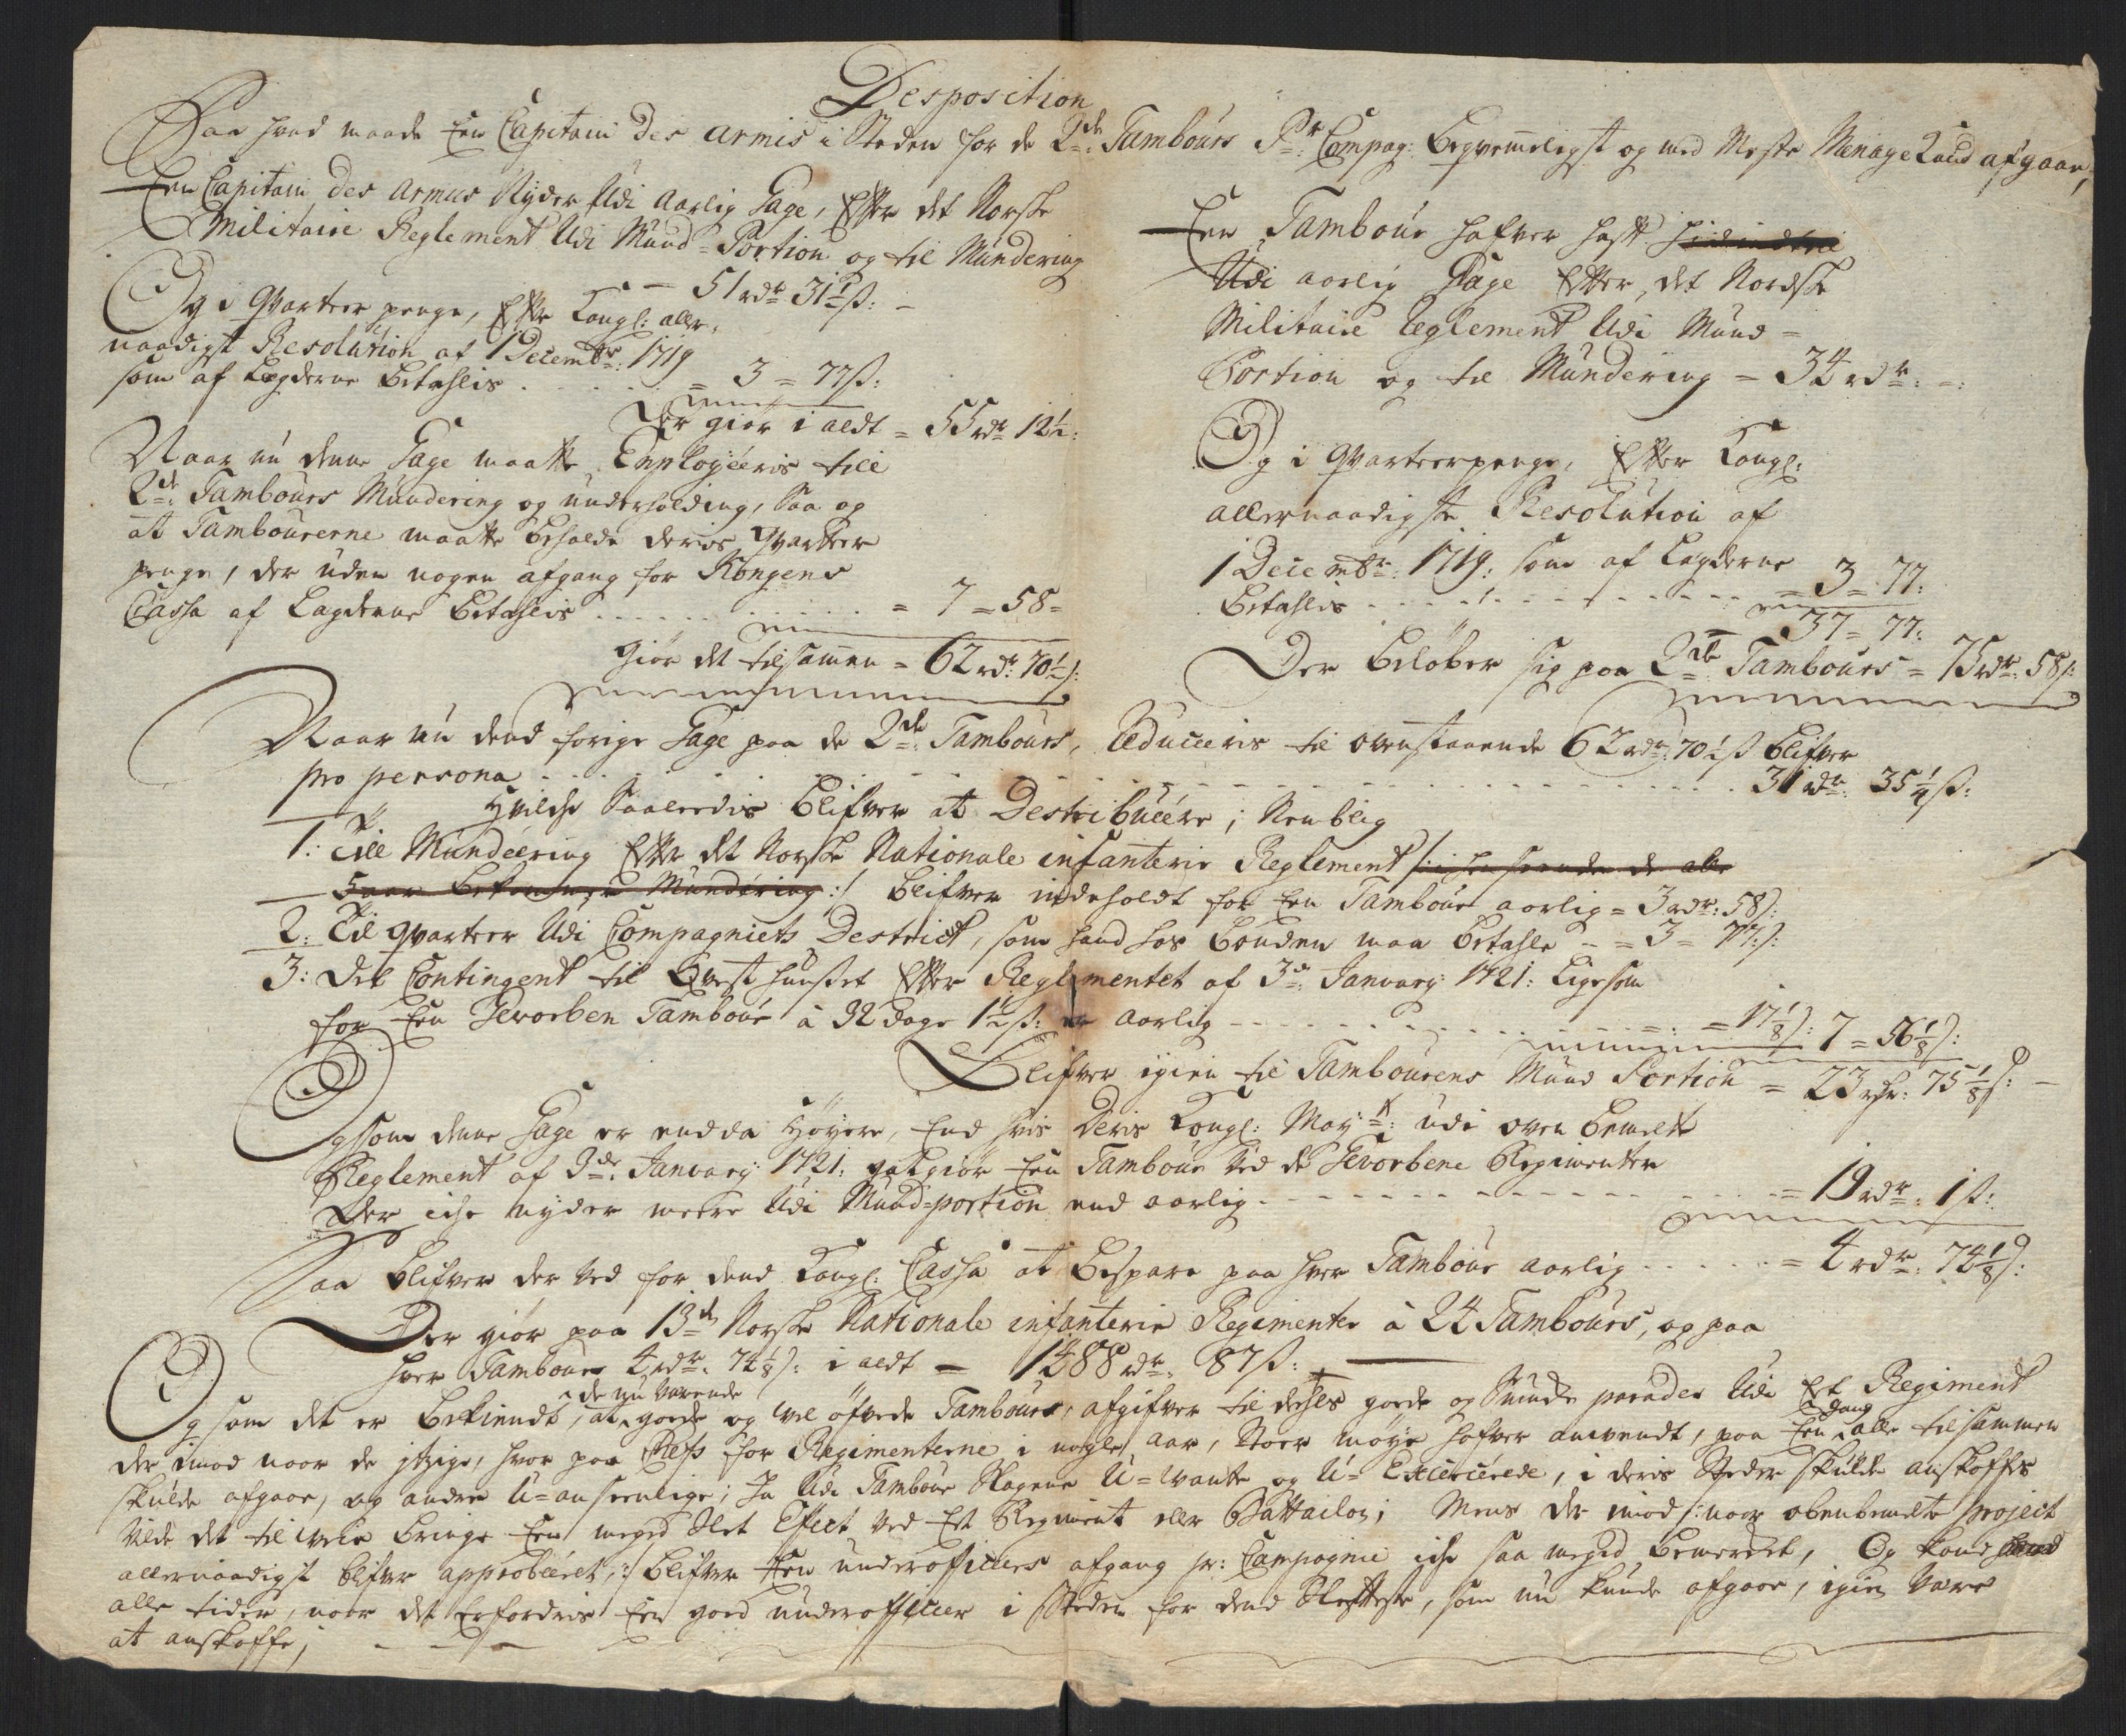 Desposition
Paa hvad maade Een Capitain des armis i Steden for de 2de Tambours Pr Compag: beqvemmeligst og med Meste Menage kand afgaae,
Een Capitain des Armus Nyder Udi Aarlig Gage, Efter det Norske
Militaire Reglement Udi Mund-Portion og til Mundering
— 51 rdr 31½ ß: —
Og i Qvarteer penge, Efter Kongl: aller-
naadigst Resolution af 1 Decembr: 1719
som af Lægderne betahlis . . . . . = 3 = 77 ß:
Der giør i aldt = 55 rdr 12½:
Naar nu denne Gage maatte Employeeris till
2de Tambours Mundering og underholding, saa og
at Tambourerne maatte beholde deris qvarteer
penge, der uden nogen afgang for Kongens
Cassa af Lægderne betahlis . . . . . . = 7 = 58 =
giør det tilsammen = 62 rdr: 70½ ß:
Een Tambour hafver haft hidindtil
Udi aarlig Gage Efter det Nordske
Militaire Reglement Udi Mund-
Portion og til Mundering = 34 rdr: -:
Og i Qvarteerpenge, Efter Kongl:
allernaadigste Resolution af
1 Decembr: 1719: som af Lægderne
betahlis . . . . . = 3 = 77:
37 = 77:
Der beløber sig paa 2de Tambours = 75 rdr: 58 ß:
Naar nu dend forige Gage paa de 2de Tambours, Reduceeris til ovenstaaende 62 rdr: 70½ ß blifver
pro persona . . . . . 31 rdr: 35¼ ß:
Hvilche Saaleedis blifver at Destribueere; Nemblig
1: Till Mundeering Efter det Norske Nationale infanterie Reglement /: i henseende de alle
Faar bekommer Mundering :/ blifver indeholdt for Een Tambour aarlig = 3 rdr: 58 ß:
2: Til qvarteer Udi Compagniets District, som hand hos bonden maa betahle - = 3 = 77: ß:
3: Det Contingent til Qvesthuuset Efter Reglementet af 3de January 1721: Ligesom
for Een Gevorben Tambour à 32 dage 1½ ß: er aarlig . . . . . = 17⅛ ß: 7 = 56⅛ ß:
Blifver igien til Tambourens Mund Portion = 23 rdr: 75⅛ ß: —
Og som denne Gage er endda Høyere, End hvis Deris Kongl: Mayt: udi oven bemelte
Reglement af 3de January 1721: godtgiør Een Tambour Ved de Gevorbene Regimenter
Der iche nyder meere Udi Mund-portion end aarlig . . . . . = 19 rdr: 1 ß:
Saa blifver der Ved for dend Kongl: Cassa at bespare paa hver Tambour aarlig . . . . . = 4 rdr: 74⅛ ß:
Der giør paa 13de Norske Nationale infanterie Regimenter à 24 Tambours, og paa
hver Tambour 4 rdr: 74⅛ ß: i aldt = 1488 rdr: 87 ß:
Og som det er bekiendt, at de nu værende goede og vel øfvede Tambours, afgifver til deeles goede og Smucke parader Udi Et Regiment
der imod naar de itzige, hvor paa Chefs for Regimenterne i nogle aar, Stoer møye hafver anvendt, paa Een gang alle tilsammen
skulde afgaae, og andre U-anseenlige; Ja Udi Tambour Slagene U-vante og U-Exercerede, i deris Steder skulde anskaffes
Vilde det til veie bringe Een meget slet Effect ved Et Regiment eller Battaillon; Mens der imod /: naar obenbemelte project
allernaadigst blifver approbeeret, :/ blifver Een underofficeers afgang pr: Compagnie iche saa meget bemerket, Og kand
alle tider, naar det Erfordris Een goed underofficeer i Steden for dend Sletteste, som nu kunde afgaae, igien være
at anskaffe;